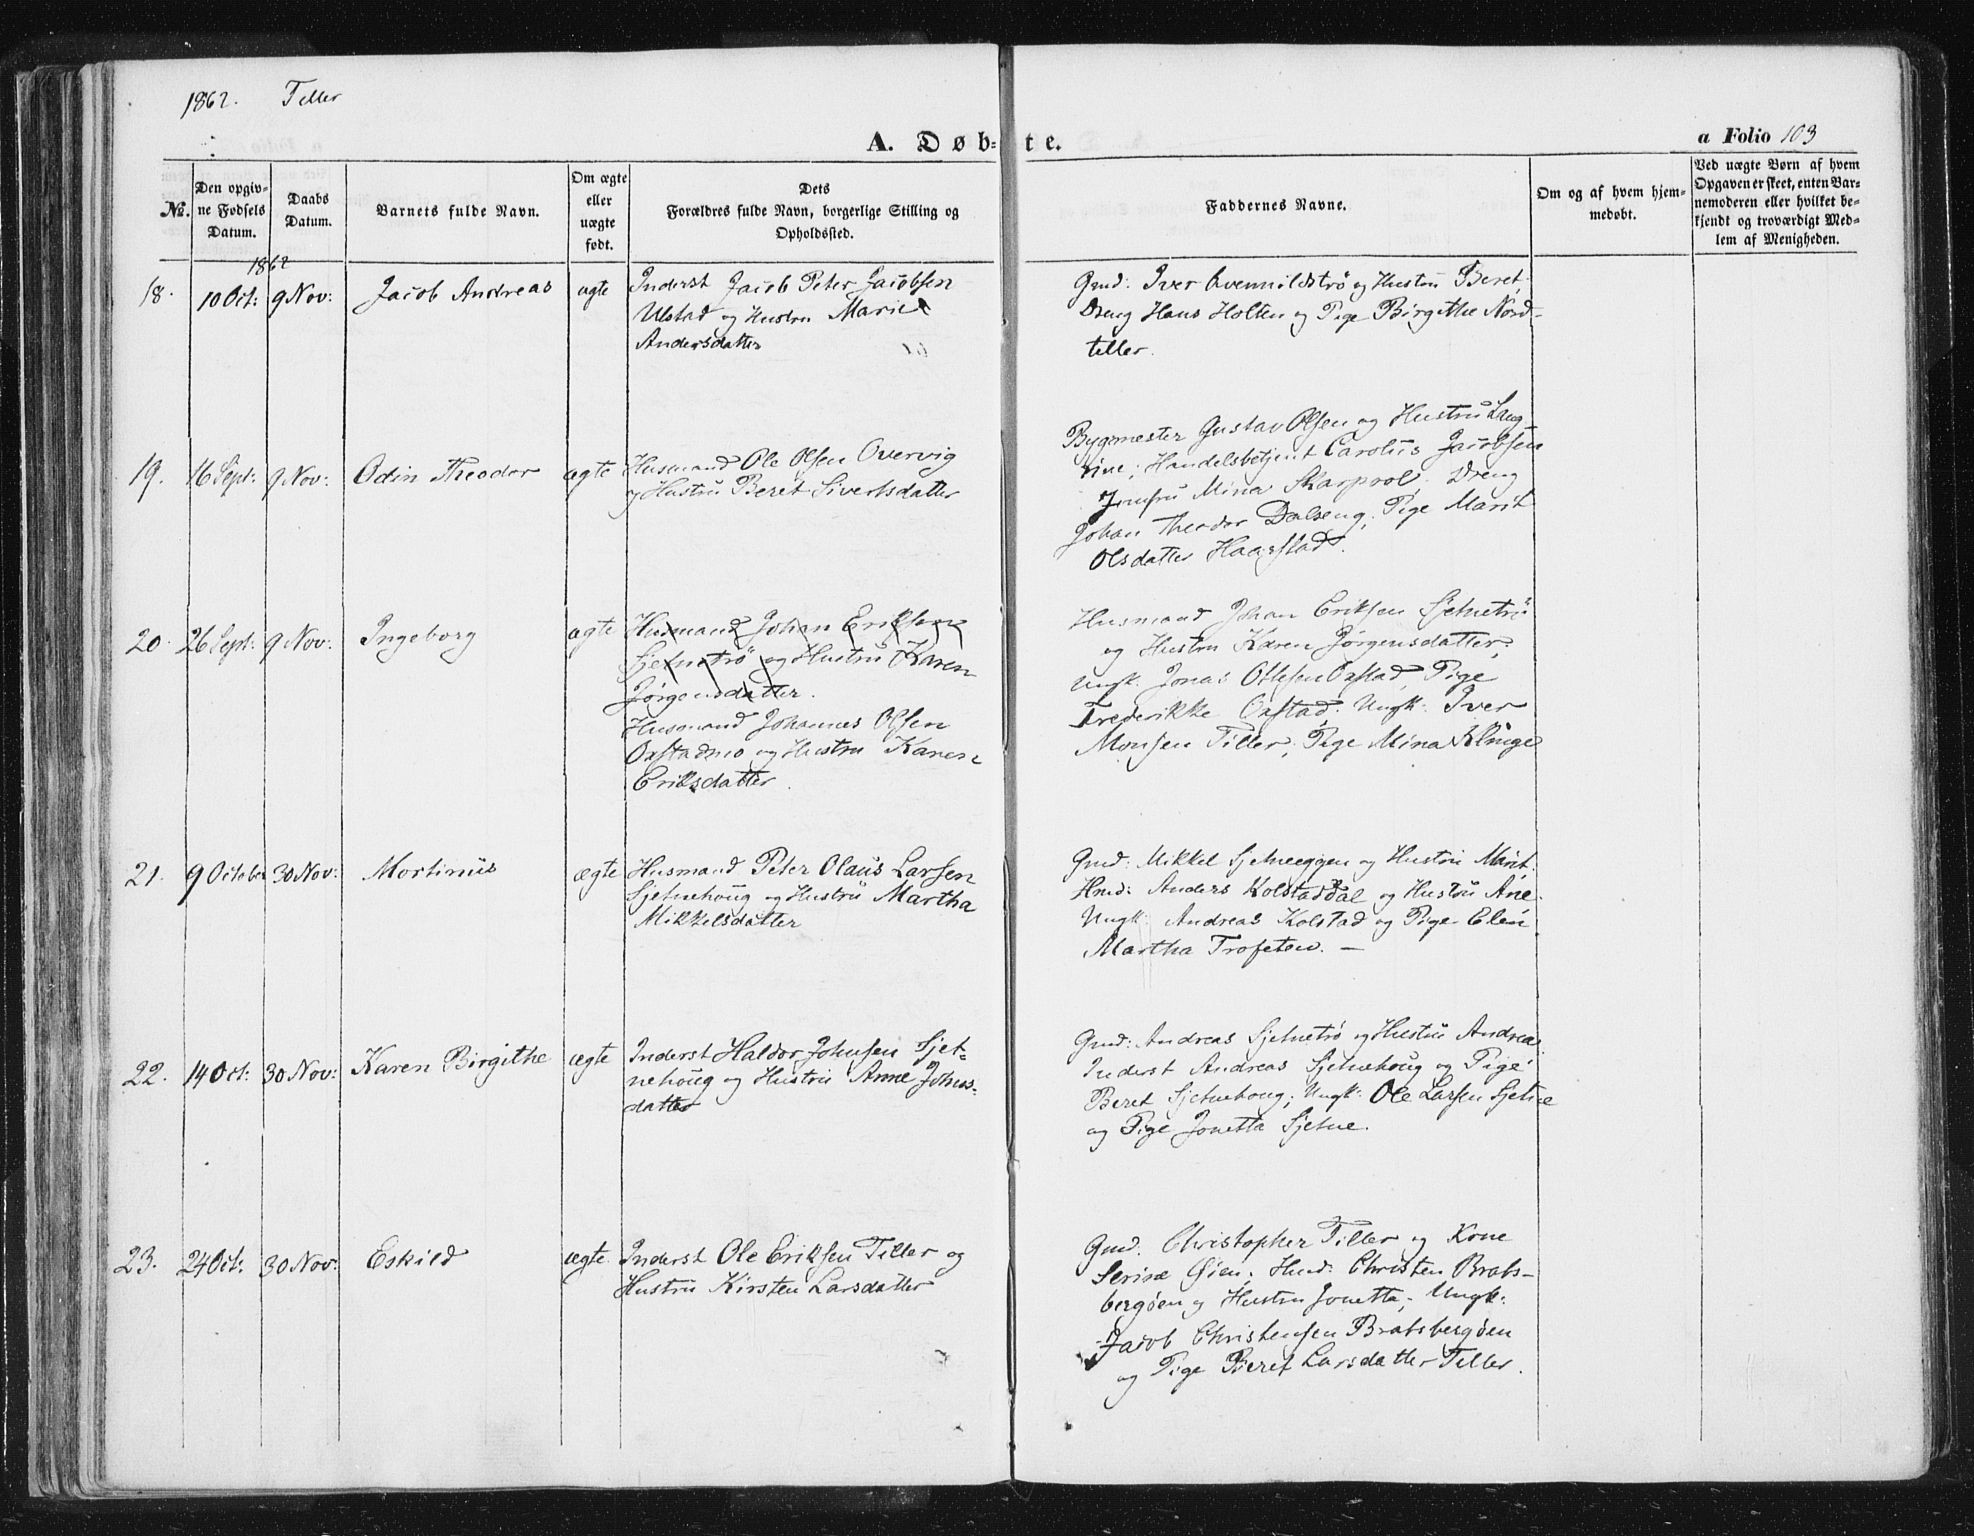 1862. Teller
A. Døbte.
a Folio 103
№.
Den opgiv-
ne Fødsels
Datum.
Daabs
Datum.
Barnets fulde Navn.
Om ægte
eller
uægte
født.
Dets
Forældres fulde Navn, borgerlige Stilling og
Opholdssted.
Faddernes Navne.
Om og af hvem hjem-
medøbt.
Ved uægte Børn af hvem
Opgaven er skeet, enten Bar-
nemoderen eller hvilket be-
kjendt og troværdigt Med-
lem af Menigheden.
1862
18. 10 Oct: 9 Nov: Jacob Andreas ægte
Inderst Jacob Peter Jacobsen
Ulstad og Hustru Marie
Andersdatter
Gmd: Iver Qvennildstrø og Hustru Beret,
Dreng Hans Holten og Pige Birgithe Nord-
teller.
19. 16 Sept: 9 Nov: Odin Theodor ægte
Husmand Ole Olsen Overvig
og Hustru Beret Sivertsdatter
Bygmester Gustav Olsen og Hustru Laug
rine; Handelsbetjent Carolus Jacobsen
Jomfru Mina Skarpool, Dreng
Johan Theodor Dalseng, Pige Marit
Olsdatter Haagstad.
20. 26 Sept: 9 Nov: Ingeborg ægte
Husmand Johan Eriksen
Sjetnetrø og Hustru Karen
Jørgensdatter.
Husmand Johannes Olsen
Oxstadmo og Hustru Karen
Eriksdatter.
Husmand Johan Eriksen Sjetnetrø
og Hustru Karen Jørgensdatter;
Ungk: Jonas Ottesen Oxstad, Pige
Frederikke Oxstad; Ungk: Iver
Monsen Tiller; Pige Mina Klinge
21. 9 October 30 Nov: Mortinus ægte
Husmand Peter Olaus Larsen
Sjetnehoug og Hustru Martha
Mikkelsdatter
Gmd: Mikkel Sjetneeggen og Hustru Marit.
Hmd: Anders Kolstaddal og Hustru Ane.
Ungk: Andreas Kolstad og Pige Elen
Martha Trofeten. —
22. 14 Oct: 30 Nov: Karen Birgithe ægte
Inderst Haldor Johnsen Sjet-
nehoug og Hustru Anne Johns-
datter
Gmd: Andreas Sjetnetrø og Hustru Andrea.
Inderst Andreas Sjetnehoug og Pige
Beret Sjetnehoug; Ungk: Ole Larsen Sjetne
og Pige Jonetta Sjetne.
23. 24 Oct: 30 Nov: Eskild ægte
Inderst Ole Eriksen Tiller og
Hustru Kirsten Larsdatter
Gmd. Christopher Tiller og Kone
Serine Øien; Hmd: Christen Brats-
bergøen og Hustru Jonetta; Ungk:
Jacob Christensen Bratsbergøen
og Pige Beret Larsdatter Teller.